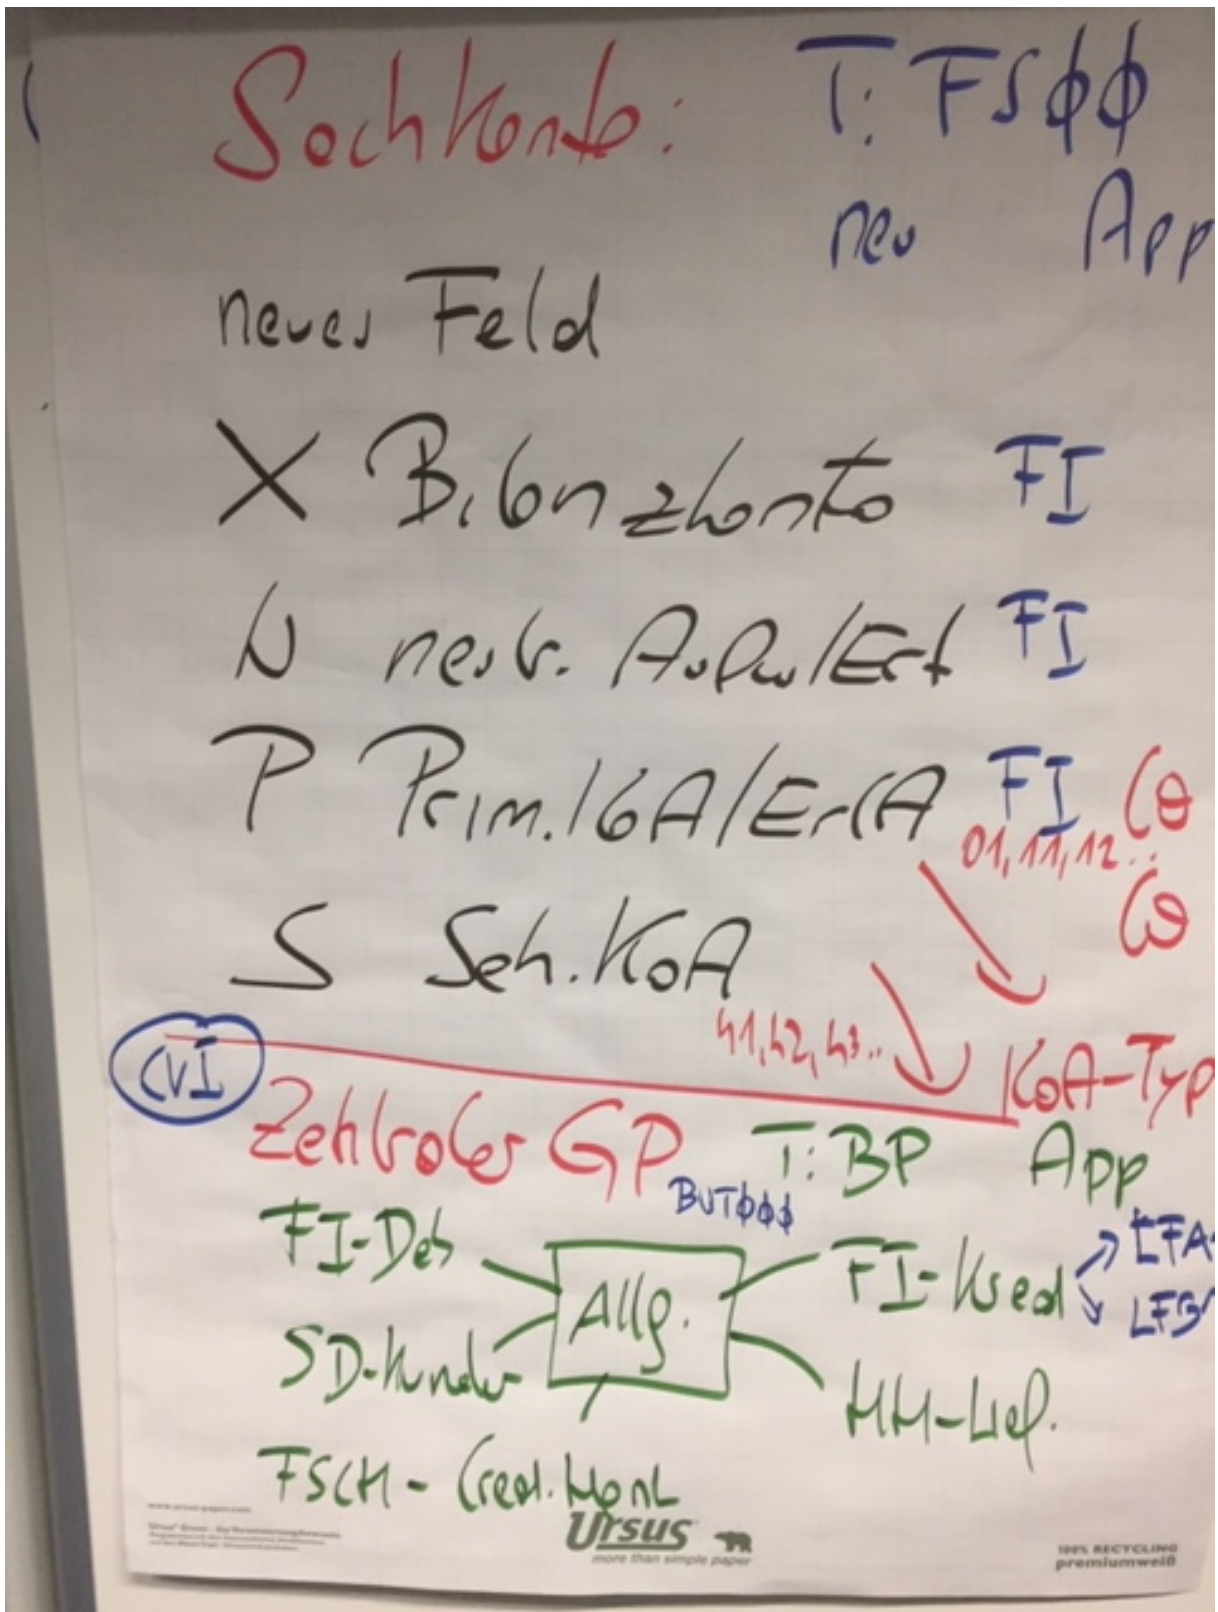 Sachkonto: T: FS00
neu App
neues Feld
X Bilanzkonto FI
N neutr. Aufw/Ert FI
P Prim. KoA/ErlA FI CO
01, 11, 12..
CO
S Sek. KoA
41, 42, 43..
KoA-Typ
CVI
Zentraler GP T: BP App
BUT000
FI-Deb Allg. FI-Kred LFA
LFB
SD-Kunde MM-Lief.
FSCM - Cred. Mgmt
www.ursus-paper.com
Ursus
more than simple paper
100% RECYCLING
premiumweiß